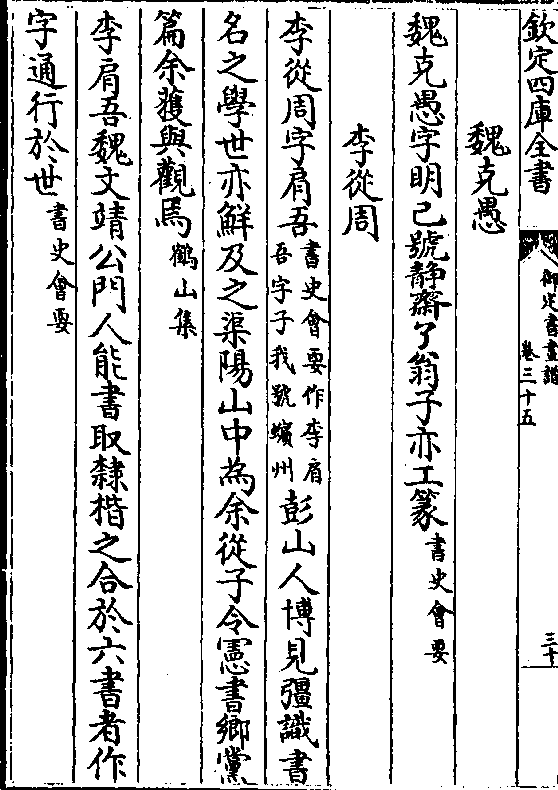 欽定四庫全書
御定書畫譜
卷三十五
三十
魏克愚
魏克愚字明己號靜齋了翁子亦工篆書史會要
李從周
李從周字肩吾書史會要作李肩吾字子我號蠙州彭山人博見彊識書
名之學世亦鮮及之渠陽山中為余從子令憲書鄉黨
篇余獲與觀焉鶴山集
李肩吾魏文靖公門人能書取隸楷之合於六書者作
字通行於世書史會要